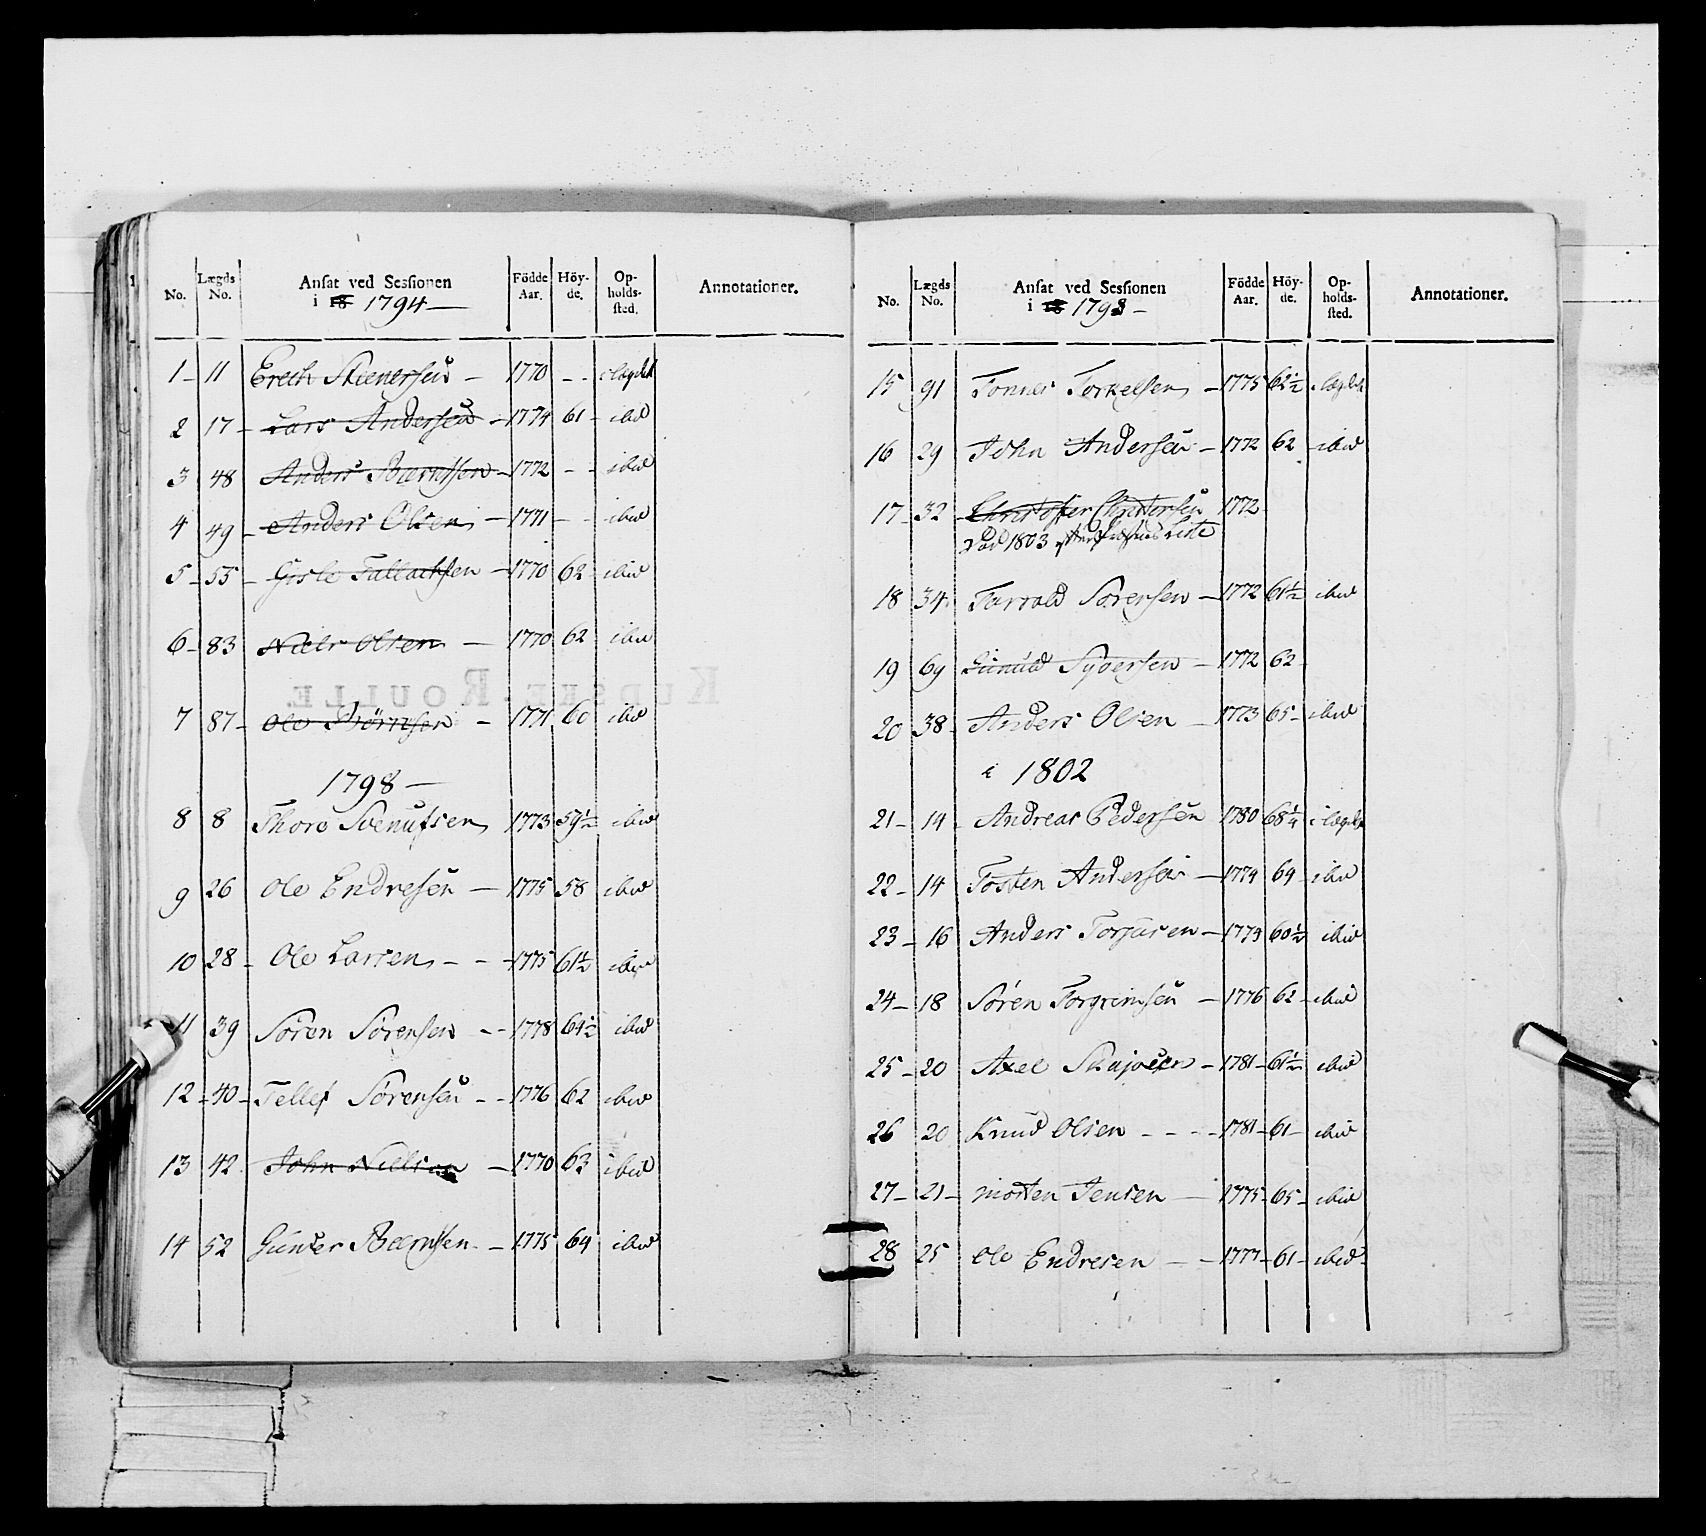 No. Lægds No. Ansat ved Sessionen i 18 1794 — Födde Aar. Höyde. Opholdssted. Annotationer.
1 – 11 Erech Stenersen – 1770 – – i lægdet
2 17 – Lars Andersen – 1774 61 – ibid
3 48 Anders Bærntsen – 1772 – – ibid
4 49 – Anders Olsen – 1771 – – ibid
5 – 55 – Gisle Tallachsen – 1770 62 – ibid
6 – 83 Niels Olsen – 1770 62 ibid
7 87 – Ole Biörnsen – 1771 60 ibid
1798 —
8 8 Thore Svenufsen 1773 59½ ibid
9 26 Ole Endresen – 1775 58 ibid
10 28 – Ole Larsen – – 1775 61½ ibid
11 39 Sören Sörensen – – 1778 64½ ibid
12 – 40 – Tellef Sörensen – – 1776 62 ibid
13 42 John Nielsen – 1770 63 ibid
14 52 Gunder Bærntsen – 1775 64 ibid
KUDSKE-ROULLE.
No. Lægds No. Ansat ved Sessionen i 18 1798 – Födde Aar. Höyde. Opholdssted. Annotationer.
15 91 Tonnes Torkelsen – 1775 62½ i lægdet
16 29 John Andersen – 1772 62 ibid
17 – 32 – Christoffer Christensen 1772
Död 1803 Liste
18 34 Tarrald Sörensen – 1772 61½ ibid
19 69 Gunuld Syversen – 1772 62 –
20 38 – Anders Olsen – 1773 65 – ibid
i 1802
21 – 14 – Andreas Pedersen 1780 68¼ i lægdet
22 – 14 Tosten Andersen – 1774 64 – ibid
23 – 16 Anders Torjusen – 1779 60½ ibid
24 – 18 Sören Torgrimsen – 1776 62 – ibid
25 – 20 Axel Skajosen – 1781 – 61½ ibid
26 20 Knud Olsen – – – 1781 – 61 – ibid
27 – 21 – Morten Jensen – 1775 – 65 – ibid
28 25 Ole Endresen – – 1777 – 61 – ibid